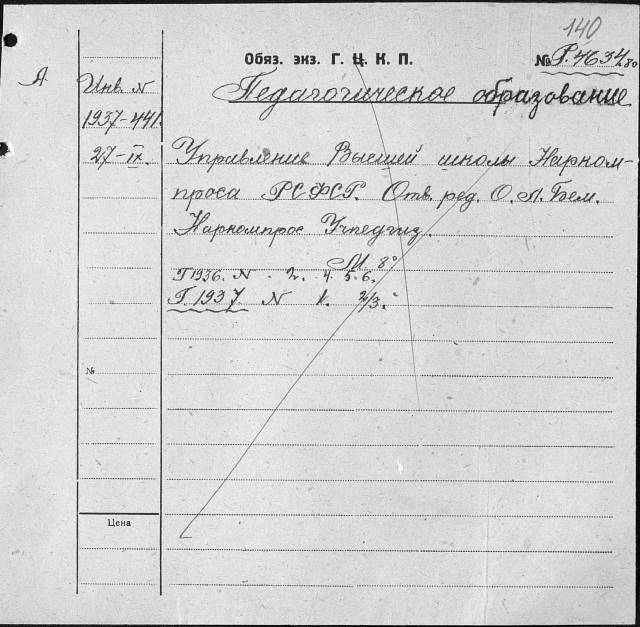 140
Обяз. экз. Г. Ц. К. П.
№ Р. 4634 80
А
Инв. N
Педагогическое образование
1937-441
27-IX.
Управление Высшей школы Нарком-
проса РСФСР. Отв. ред. О. Л. Бем.
Наркомпрос Учпедгиз.
М 8°
Г 1936. N - 2. 4. 5-6.
Г 1937 N 1. 2/3.
№
Цена